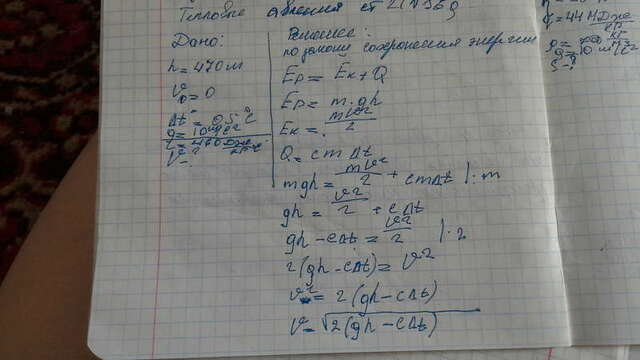 Тепловые явления ст 21 №36д
Дано:
h = 470 м
v₀ = 0
Δt = 0,5 °C
g = 10 м/с²
c = 460 Дж/кг°C
v - ?
Решение:
по закону сохранения энергии
Ep = Ek + Q
Ep = m·gh
Ek = mv²/2
Q = cmΔt
mgh = mv²/2 + cmΔt |:m
gh = v²/2 + cΔt
gh - cΔt = v²/2 |·2
2(gh - cΔt) = v²
v² = 2(gh - cΔt)
v = √2(gh - cΔt)
q = 44 МДж/кг
S - ?